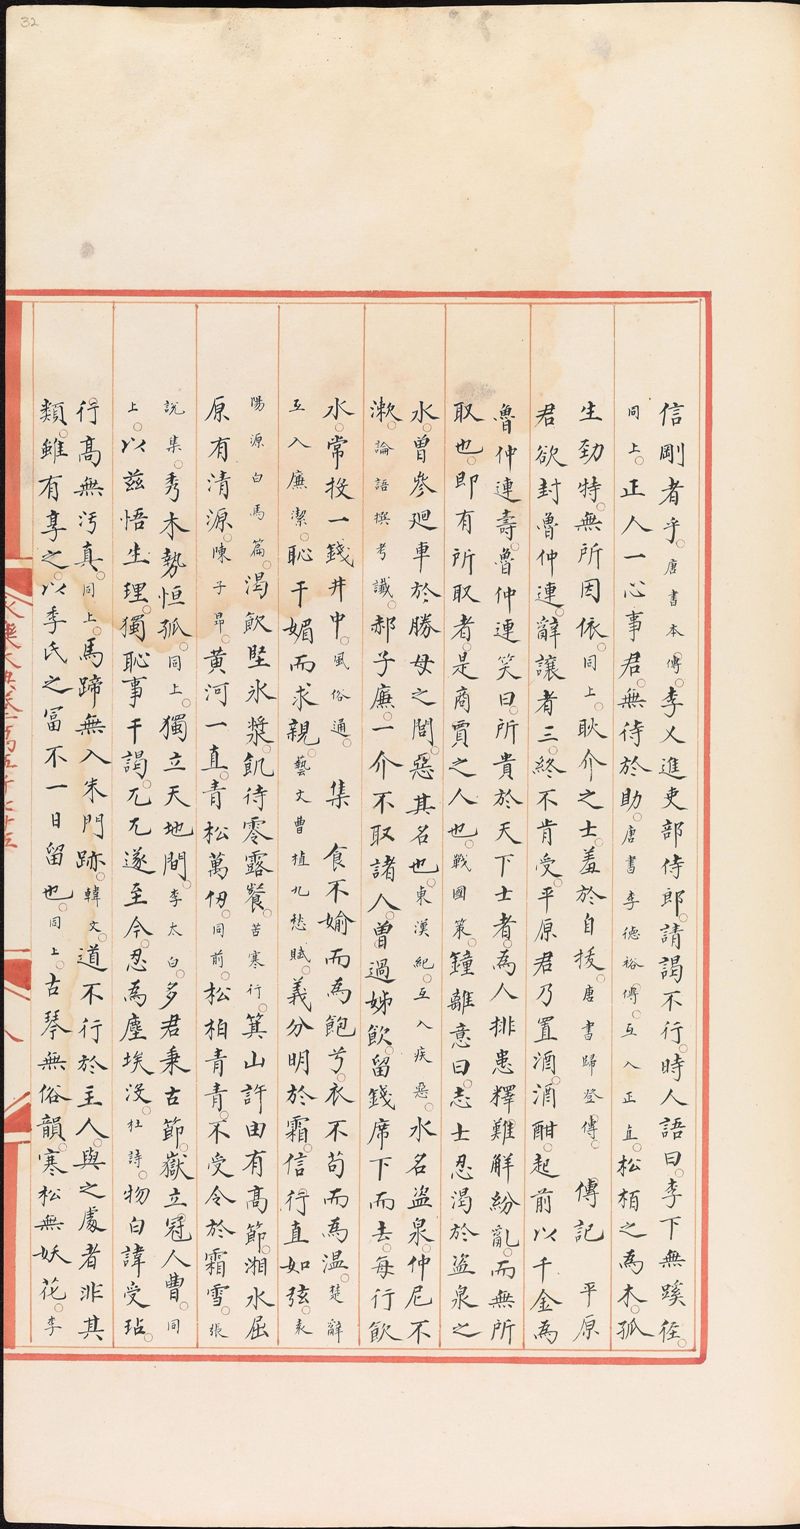 32
信剛者乎。唐書本傳。李乂進吏部侍郎。請謁不行。時人語曰。李下無蹊徑。
同上。正人一心事君。無待於助。唐書李德裕傳。互入正直。松栢之為木。孤
生勁特。無所因依。同上。耿介之士。羞於自拔。唐書歸登傳。 傳記 平原
君欲封魯仲連。辭讓者三。終不肯受。平原君乃置酒。酒酣。起前以千金為
魯仲連壽。魯仲連笑曰。所貴於天下士者。為人排患釋難解紛亂。而無所
取也。即有所取者。是商賈之人也。戰國策。鐘離意曰。志士忍渴於盜泉之
水。曾參廻車於勝母之閭。惡其名也。東漢紀。互入疾惡。水名盜泉。仲尼不
漱。論語撰考讖。郝子廉。一介不取諸人。曾過姊飲。留錢席下而去。每行飲
水。常投一錢井中。風俗通。 集 食不媮而為飽兮。衣不苟而為温。楚辭
互入廉潔。恥干媚而求親。藝文曹植九愁賦。義分明於霜。信行直如弦。袁
陽源白馬篇。渴飲堅氷漿。飢待零露餐。苦寒行。箕山許由有高節。湘水屈
原有清源。陳子昂。黃河一直。青松萬仞。同前。松柏青青。不受令於霜雪。張
說集。秀木勢恒孤。同上。獨立天地間。李太白。多君秉古節。嶽立冠人曹。同
上。以茲悟生理。獨恥事干謁。兀兀遂至今。忍為塵埃沒。杜詩。物白諱受玷。
行高無汚真。同上。馬蹄無入朱門跡。韓文。道不行於主人。與之處者非其
類。雖有享之。以季氏之冨不一日留也。同上。古琴無俗韻。寒松無妖花。李